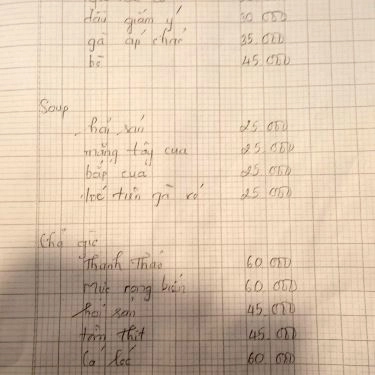 dầu giấm ý 30.000
gà áp chảo 35.000
bò 45.000
Soup
hải sản 25.000
măng tây cua 25.000
bắp cua 25.000
gà 25.000
Chả giò
Thanh Thảo 60.000
mực rong biển 60.000
hải sản 45.000
tôm thịt 45.000
Cá lóc 60.000